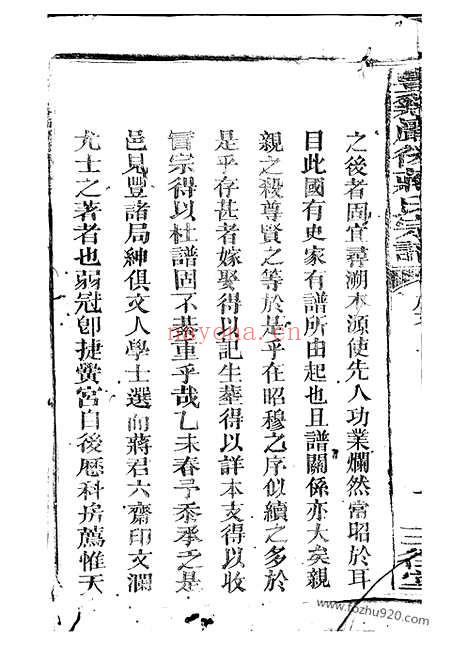 之後者固宜尋溯本源使先人功業爛然常昭於耳
目此國有史家有譜所由起也且譜關係亦大矣親
親之殺尊賢之等於是乎在昭穆之序似續之多於
是乎存甚者嫁娶得以記生塟得以詳本支得以收
宗得以杜譜固不重乎哉乙未春予忝承之是
邑見豐諸局紳俱文人學士選而蔣君六齋印文瀾
尤士之著者也弱冠卽捷黌宮自後歷科房薦惟天
後蔣氏宗譜
nayona.cn
www.fozhu920.com